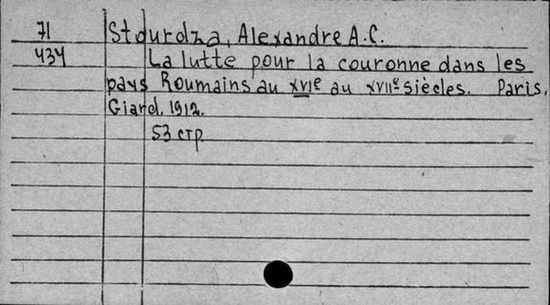 71 Stourdza, Alexandre A.C.
434 La lutte pour la couronne dans les
pays Roumains au XVIe au XVIIe siècles. Paris,
Giard, 1912.
53 стр.